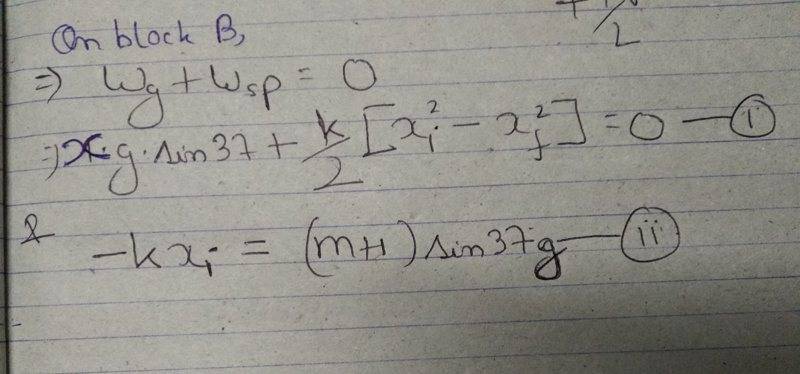 On block B,
⇒ Wg + Wsp = 0
⇒ x·g·sin37 + k/2 [xi² - xf²] = 0 — (i)
& -kxi = (m+1) sin37·g — (ii)